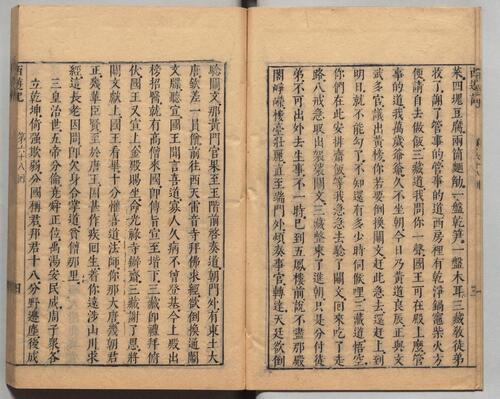 西遊記
菜四塊豆腐兩箇麵觔一盤乾笋一盤木耳三藏教徒弟
收了謝了管事的管事的道西房裡有乾淨鍋竈柴火方
便請自去做飯三藏道我問你一聲國王可在殿上麼管
事的道我萬歲爺爺久不坐朝今日乃黃道良辰正與文
武多官議出黃榜你若要倒換關文趂此急去還趕上到
明日就不能勾了不知還有多少時伺候哩三藏道悟空
你們在此安排齋飯等我急急去驗了關文回來吃了走
路八戒急取出袈裟關文三藏整束了進朝只是分付徒
弟不可出外去生事不一時已到五鳳樓前說不盡那殿
閣崢嶸樓臺壯麗直至端門外煩奏事官轉達天廷欲倒
驗關文那黃門官果至玉階前啓奏道朝門外有東土大
唐欽差一員僧前徃西天雷音寺拜佛求經欲倒換通關
文牒聽宣國王聞言喜道寡人久病不曾登基今上殿出
榜招醫就有高僧來國即傳旨宣至堦下三藏即禮拜俯
伏國王又宣上金殿賜坐命光祿寺辦齋三藏謝了恩將
關文獻上國王看畢十分懽喜道法師你那大唐幾朝君
正幾輩臣賢至於唐王因甚作疾回生着你遠涉山川求
經這長老因問即欠身合掌道貧僧那里
三皇治世五帝分倫堯舜正位禹湯安民成周子眾各
立乾坤倚强欺弱分國稱君邦君十八分野邊塵後成
西遊記 第六十八回 四